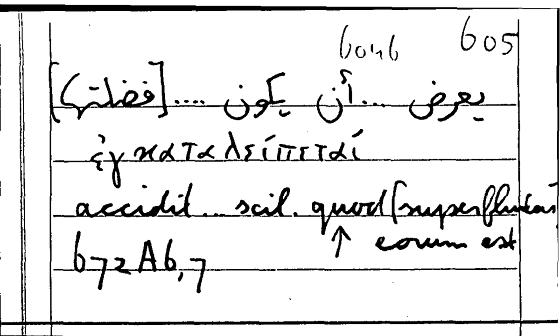 605
6046
يعرض ... أن يكون .... [فضلتها]
ἐγκαταλείπεταί
accidit ... scil. quod [superfluitas
↑ eorum est
672A6,7